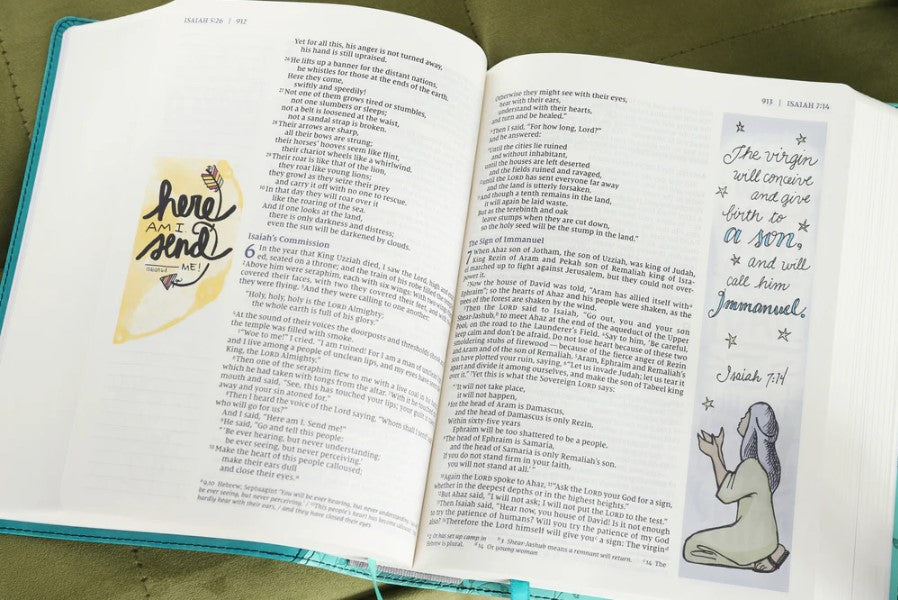 ISAIAH 5:26 | 912
Yet for all this, his anger is not turned away,
his hand is still upraised.
26 He lifts up a banner for the distant nations,
he whistles for those at the ends of the earth.
Here they come,
swiftly and speedily!
27 Not one of them grows tired or stumbles,
not one slumbers or sleeps;
not a belt is loosened at the waist,
not a sandal strap is broken.
28 Their arrows are sharp,
all their bows are strung;
their horses' hooves seem like flint,
their chariot wheels like a whirlwind.
29 Their roar is like that of the lion,
they roar like young lions;
they growl as they seize their prey
and carry it off with no one to rescue.
30 In that day they will roar over it
like the roaring of the sea.
And if one looks at the land,
there is only darkness and distress;
even the sun will be darkened by clouds.
here
AM I.
send
ME!
Isaiah's Commission
6 In the year that King Uzziah died, I saw the Lord, high and
ed, seated on a throne; and the train of his robe filled the
2 Above him were seraphim, each with six wings: With two wings
covered their faces, with two they covered their feet, and with
they were flying. 3 And they were calling to one another:
"Holy, holy, holy is the LORD Almighty;
the whole earth is full of his glory."
4 At the sound of their voices the doorposts and thresholds shook
the temple was filled with smoke.
5 "Woe to me!" I cried. "I am ruined! For I am a man of unclean
and I live among a people of unclean lips, and my eyes have seen
King, the LORD Almighty."
6 Then one of the seraphim flew to me with a live coal in his
which he had taken with tongs from the altar. 7 With it he touched
mouth and said, "See, this has touched your lips; your guilt is
away and your sin atoned for."
8 Then I heard the voice of the Lord saying, "Whom shall I send?
who will go for us?"
And I said, "Here am I. Send me!"
9 He said, "Go and tell this people:
"'Be ever hearing, but never understanding;
be ever seeing, but never perceiving.'
10 Make the heart of this people calloused;
make their ears dull
and close their eyes.a
a 9,10 Hebrew; Septuagint 'You will be ever hearing, but never understanding;
be ever seeing, but never perceiving.' / 10 This people's heart has become calloused;
hardly hear with their ears, / and they have closed their eyes.
913 | ISAIAH 7:14
Otherwise they might see with their eyes,
hear with their ears,
understand with their hearts,
and turn and be healed."
11 Then I said, "For how long, Lord?"
And he answered:
"Until the cities lie ruined
and without inhabitant,
until the houses are left deserted
and the fields ruined and ravaged,
12 until the LORD has sent everyone far away
and the land is utterly forsaken.
13 And though a tenth remains in the land,
it will again be laid waste.
But as the terebinth and oak
leave stumps when they are cut down,
so the holy seed will be the stump in the land."
The Sign of Immanuel
7 When Ahaz son of Jotham, the son of Uzziah, was king of Judah,
King Rezin of Aram and Pekah son of Remaliah king of Isra-
marched up to fight against Jerusalem, but they could not over-
power it.
2 Now the house of David was told, "Aram has allied itself with
Ephraim"; so the hearts of Ahaz and his people were shaken, as the
trees of the forest are shaken by the wind.
3 Then the LORD said to Isaiah, "Go out, you and your son
Shear-Jashub, to meet Ahaz at the end of the aqueduct of the Upper
Pool, on the road to the Launderer's Field. 4 Say to him, 'Be careful,
keep calm and don't be afraid. Do not lose heart because of these two
smoldering stubs of firewood — because of the fierce anger of Rezin
and Aram and of the son of Remaliah. 5 Aram, Ephraim and Remaliah's
son have plotted your ruin, saying, 6 "Let us invade Judah; let us tear it
apart and divide it among ourselves, and make the son of Tabeel king
over it." 7 Yet this is what the Sovereign LORD says:
"'It will not take place,
it will not happen,
8 for the head of Aram is Damascus,
and the head of Damascus is only Rezin.
Within sixty-five years
Ephraim will be too shattered to be a people.
9 The head of Ephraim is Samaria,
and the head of Samaria is only Remaliah's son.
If you do not stand firm in your faith,
you will not stand at all.'"
10 Again the LORD spoke to Ahaz, 11 "Ask the LORD your God for a sign,
whether in the deepest depths or in the highest heights."
12 But Ahaz said, "I will not ask; I will not put the LORD to the test."
13 Then Isaiah said, "Hear now, you house of David! Is it not enough
to try the patience of humans? Will you try the patience of my God
also? 14 Therefore the Lord himself will give you a sign: The virgin
2 Or has set up camp in
3 Shear-Jashub means a remnant will return.
14 The
Hebrew is plural.
14 Or young woman
The virgin
will conceive
and give
birth to
a son,
and will
call him
Immanuel.
Isaiah 7:14